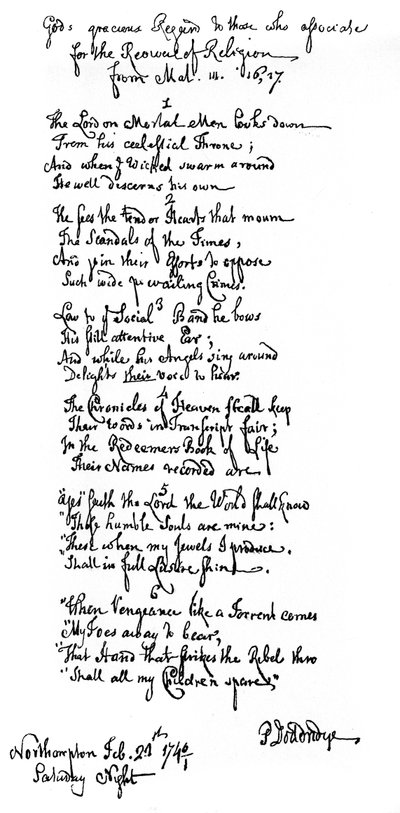 Gods gracious Regard to those who associate
for the Revival of Religion
from Mal. III. 16, 17.
1
The Lord on Mortal Men looks down
From his ceelestial Throne;
And when ye Wicked swarm around
He well discerns his own
2
He sees the tender Hearts that mourn
The Scandals of the Times,
And join their Efforts to oppose
Such wide prevailing Crimes.
3
Low to ye Social Band he bows
His still attentive Ear;
And while his Angels sing around
Delights their voice to hear.
4
The Chronicles of Heaven shall keep
Their Words in Transcript fair;
In the Redeemers Book of Life
Their Names recorded are
5
"Yes" saith the Lord the World shall know
"Those humble Souls are mine:
"These when my Jewels I produce.
"Shall in full Lustre shine.
6
"When Vengeance like a Torrent comes
"My Foes away to bear,
"That Hand that strikes the Rebel thro
"Shall all my Children spare,"
P Doddridge
Northampton Feb. 21st 1740/1
Saturday Night